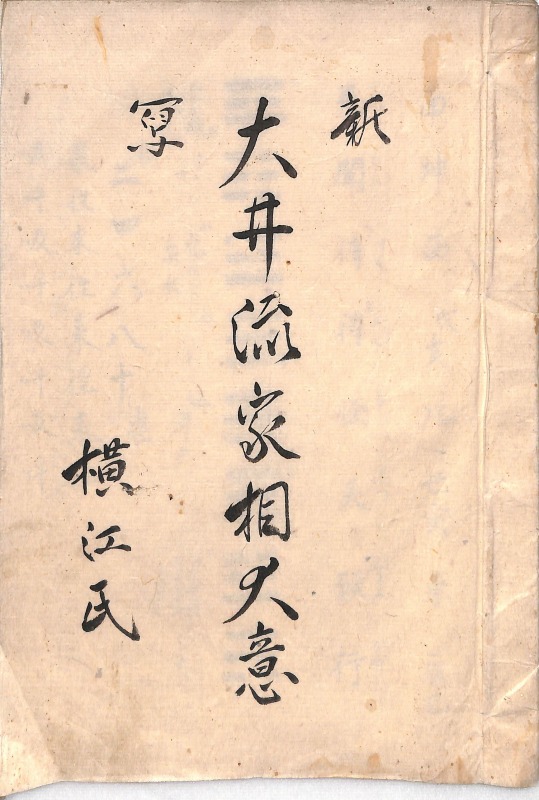 新
大井流家相大意
写
横江氏